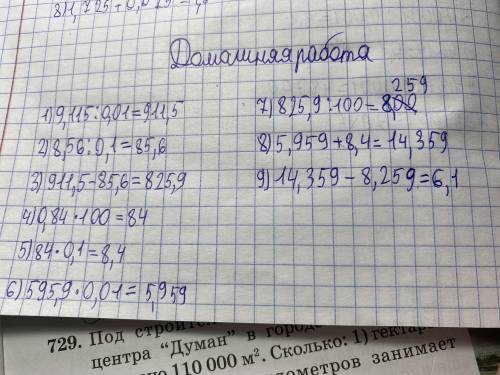 Домашняя работа
1) 9,115:0,01=911,5
2) 8,56:0,1=85,6
3) 911,5-85,6=825,9
4) 0,84·100=84
5) 84·0,1=8,4
6) 595,9·0,01=5,959
259
7) 825,9:100=8,00
8) 5,959+8,4=14,359
9) 14,359-8,259=6,1
729. Под
центра “Думан” в
110 000 м². Сколько: 1)
занимает